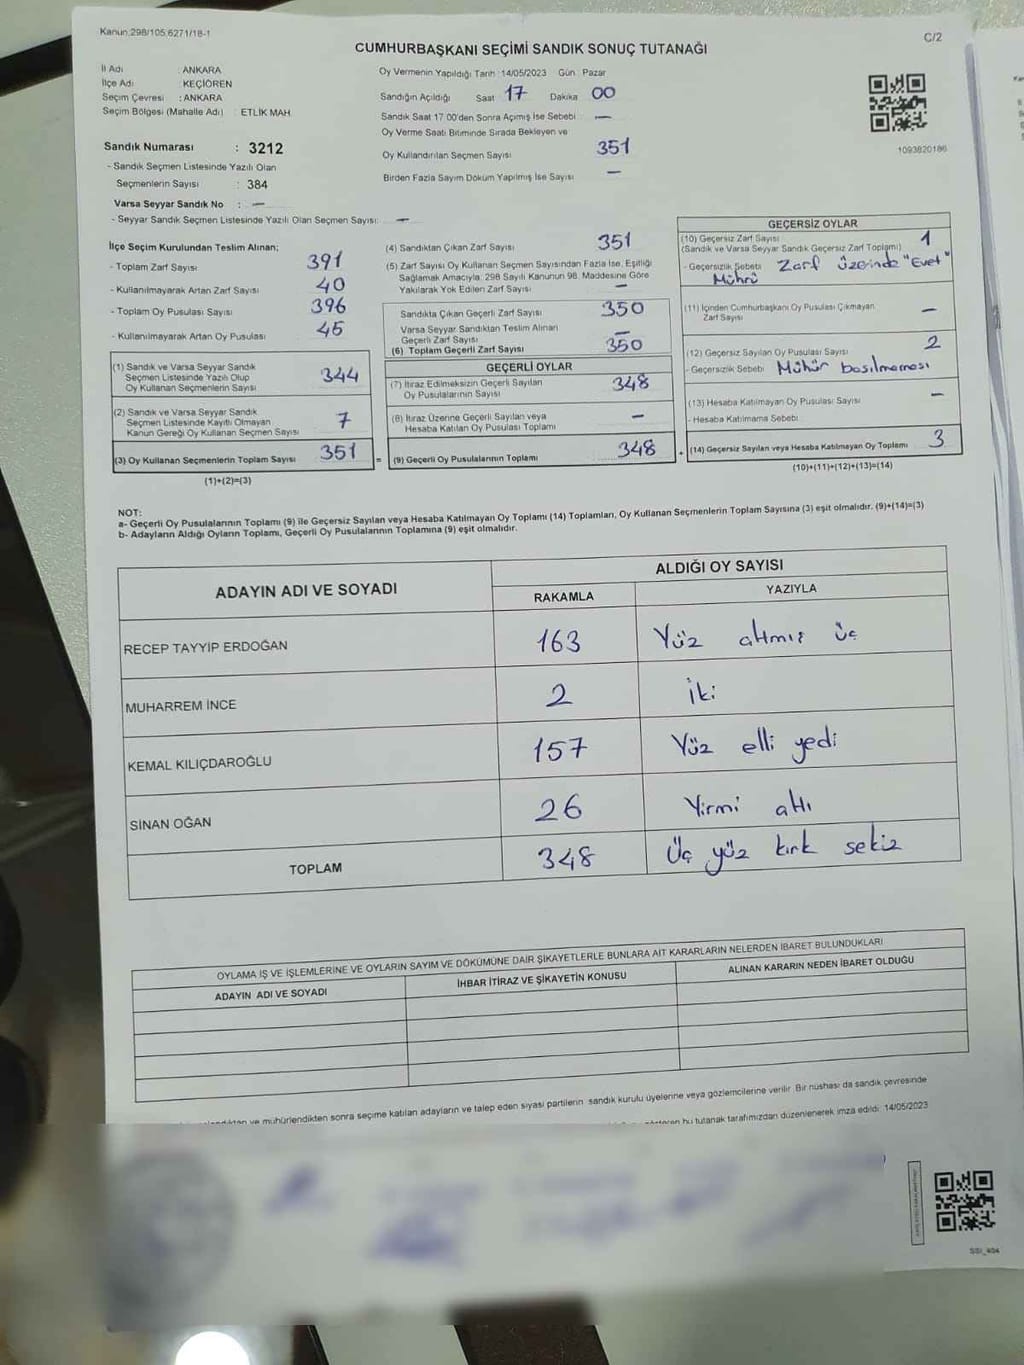 Kanun.298/105.6271/18-1
C/2
CUMHURBAŞKANI SEÇİMİ SANDIK SONUÇ TUTANAĞI
İl Adı : ANKARA
İlçe Adı : KEÇİÖREN
Seçim Çevresi : ANKARA
Seçim Bölgesi (Mahalle Adı) : ETLİK MAH.
Sandık Numarası : 3212
- Sandık Seçmen Listesinde Yazılı Olan
Seçmenlerin Sayısı : 384
Varsa Seyyar Sandık No : —
- Seyyar Sandık Seçmen Listesinde Yazılı Olan Seçmen Sayısı: —
Oy Vermenin Yapıldığı Tarih :14/05/2023 Gün : Pazar
Sandığın Açıldığı Saat 17 Dakika 00
Sandık Saat 17.00'den Sonra Açımış İse Sebebi —
Oy Verme Saati Bitiminde Sırada Bekleyen ve
Oy Kullandırılan Seçmen Sayısı 351
Birden Fazla Sayım Döküm Yapılmış İse Sayısı —
1093820186
İlçe Seçim Kurulundan Teslim Alınan;
- Toplam Zarf Sayısı 391
- Kullanılmayarak Artan Zarf Sayısı 40
- Toplam Oy Pusulası Sayısı 396
- Kullanılmayarak Artan Oy Pusulası 45
(1) Sandık ve Varsa Seyyar Sandık
Seçmen Listesinde Yazılı Olup
Oy Kullanan Seçmenlerin Sayısı 344
(2) Sandık ve Varsa Seyyar Sandık
Seçmen Listesinde Kayıtlı Olmayan
Kanun Gereği Oy Kullanan Seçmen Sayısı 7
(3) Oy Kullanan Seçmenlerin Toplam Sayısı 351 =
(1)+(2)=(3)
(4) Sandıktan Çıkan Zarf Sayısı 351
(5) Zarf Sayısı Oy Kullanan Seçmen Sayısından Fazla İse, Eşitliği
Sağlamak Amacıyla, 298 Sayılı Kanunun 98. Maddesine Göre
Yakılarak Yok Edilen Zarf Sayısı —
Sandıkta Çıkan Geçerli Zarf Sayısı 350
Varsa Seyyar Sandıktan Teslim Alınan
Geçerli Zarf Sayısı —
(6) Toplam Geçerli Zarf Sayısı 350
GEÇERLİ OYLAR
(7) İtiraz Edilmeksizin Geçerli Sayılan
Oy Pusulalarının Sayısı 348
(8) İtiraz Üzerine Geçerli Sayılan veya
Hesaba Katılan Oy Pusulası Toplamı —
(9) Geçerli Oy Pusulalarının Toplamı 348 +
GEÇERSİZ OYLAR
(10) Geçersiz Zarf Sayısı 1
(Sandık ve Varsa Seyyar Sandık Geçersiz Zarf Toplamı)
- Geçersizlik Sebebi Zarf üzerinde "Evet"
Mührü
(11) İçinden Cumhurbaşkanı Oy Pusulası Çıkmayan
Zarf Sayısı —
(12) Geçersiz Sayılan Oy Pusulası Sayısı 2
- Geçersizlik Sebebi Mühür basılmaması
(13) Hesaba Katılmayan Oy Pusulası Sayısı —
- Hesaba Katılmama Sebebi
(14) Geçersiz Sayılan veya Hesaba Katılmayan Oy Toplamı 3
(10)+(11)+(12)+(13)=(14)
NOT:
a- Geçerli Oy Pusulalarının Toplamı (9) ile Geçersiz Sayılan veya Hesaba Katılmayan Oy Toplamı (14) Toplamları, Oy Kullanan Seçmenlerin Toplam Sayısına (3) eşit olmalıdır. (9)+(14)=(3)
b- Adayların Aldığı Oyların Toplamı, Geçerli Oy Pusulalarının Toplamına (9) eşit olmalıdır.
ADAYIN ADI VE SOYADI
ALDIĞI OY SAYISI
RAKAMLA YAZIYLA
RECEP TAYYİP ERDOĞAN 163 Yüz altmış üç
MUHARREM İNCE 2 İki
KEMAL KILIÇDAROĞLU 157 Yüz elli yedi
SİNAN OĞAN 26 Yirmi altı
TOPLAM 348 Üç yüz kırk sekiz
OYLAMA İŞ VE İŞLEMLERİNE VE OYLARIN SAYIM VE DÖKÜMÜNE DAİR ŞİKAYETLERLE BUNLARA AİT KARARLARIN NELERDEN İBARET BULUNDUKLARI
ADAYIN ADI VE SOYADI İHBAR İTİRAZ VE ŞİKAYETİN KONUSU ALINAN KARARIN NEDEN İBARET OLDUĞU
ve mühürlendikten sonra seçime katılan adayların ve talep eden siyasi partilerin sandık kurulu üyelerine veya gözlemcilerine verilir. Bir nüshası da sandık çevresinde
bu tutanak tarafımızdan düzenlenerek imza edildi. 14/05/2023
SSI_404